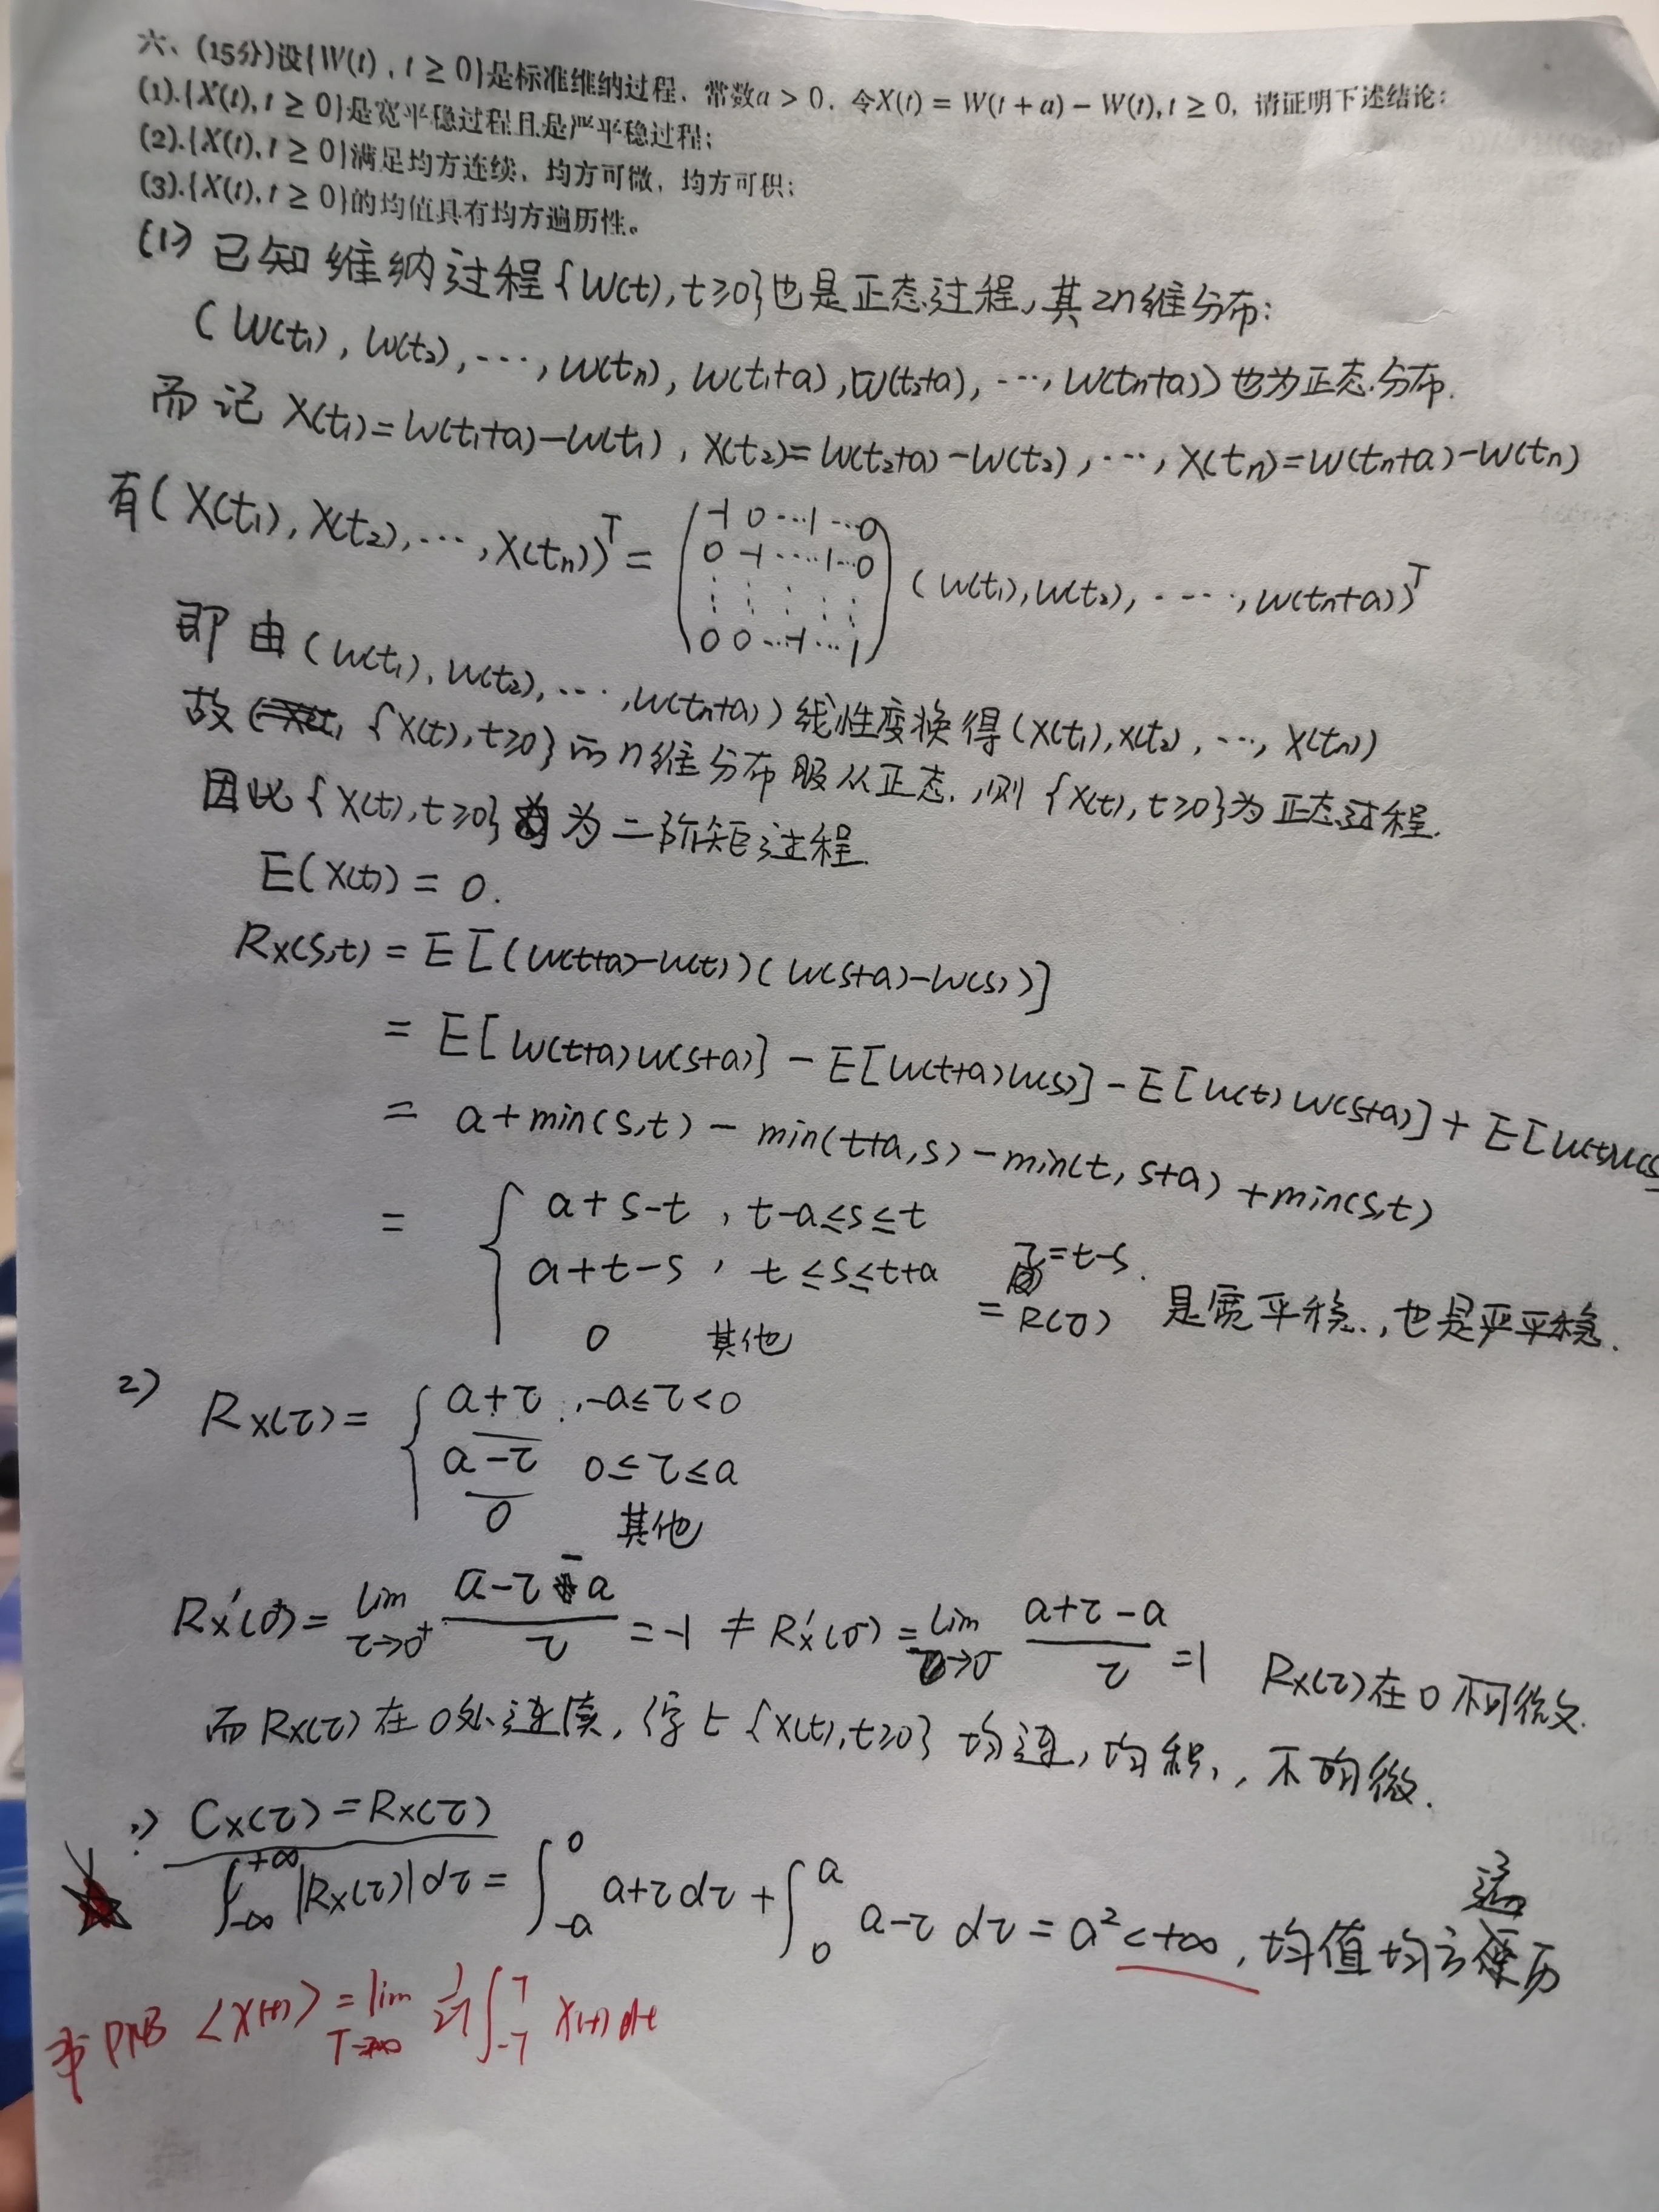 六、(15分)设{W(t), t ≥ 0}是标准维纳过程，常数a > 0，令X(t) = W(t + a) − W(t), t ≥ 0，请证明下述结论：
(1).{X(t), t ≥ 0}是宽平稳过程且是严平稳过程；
(2).{X(t), t ≥ 0}满足均方连续，均方可微，均方可积；
(3).{X(t), t ≥ 0}的均值具有均方遍历性。
(1) 已知维纳过程{W(t), t≥0}也是正态过程,其2n维分布:
(W(t₁), W(t₂), ⋯, W(tn), W(t₁+a), W(t₂+a), ⋯, W(tn+a))也为正态分布.
而记 X(t₁)=W(t₁+a)−W(t₁), X(t₂)=W(t₂+a)−W(t₂), ⋯, X(tn)=W(tn+a)−W(tn)
有(X(t₁), X(t₂), ⋯, X(tn))ᵀ = (−1 0 ⋯ 1 ⋯ 0
0 −1 ⋯ 1 ⋯ 0
⋮ ⋮ ⋮ ⋮ ⋮
0 0 ⋯ −1 ⋯ 1) (W(t₁), W(t₂), ⋯, W(tn+a))ᵀ
即由(W(t₁), W(t₂), ⋯, W(tn+a))线性变换得(X(t₁), X(t₂), ⋯, X(tn))
故 {X(t), t≥0}的n维分布服从正态, 则{X(t), t≥0}为正态过程.
因此{X(t), t≥0}为二阶矩过程.
E(X(t)) = 0.
Rx(s,t) = E[(W(t+a)−W(t))(W(s+a)−W(s))]
= E[W(t+a)W(s+a)] − E[W(t+a)W(s)] − E[W(t)W(s+a)] + E[W(t)W(s
= a+min(s,t) − min(t+a,s) − min(t, s+a) + min(s,t)
= { a+s−t , t−a≤s≤t
a+t−s , t≤s≤t+a τ=t−s.
0 其他 = R(τ) 是宽平稳,也是严平稳.
2) Rx(τ) = { a+τ , −a≤τ<0
a−τ 0≤τ≤a
0 其他
Rx'(0⁺) = lim τ→0⁺ (a−τ−a)/τ = −1 ≠ Rx'(0⁻) = lim τ→0⁻ (a+τ−a)/τ = 1 Rx(τ)在0不可微
而Rx(τ)在0处连续, {X(t), t≥0} 均连, 均积, 不均微.
Cx(τ) = Rx(τ)
∫₋∞⁺∞ |Rx(τ)|dτ = ∫₋ₐ⁰ a+τ dτ + ∫₀ᵃ a−τ dτ = a² < +∞, 均值均方遍历
<X(t)> = lim T→∞ 1/2T ∫₋Tᵀ X(t) dt